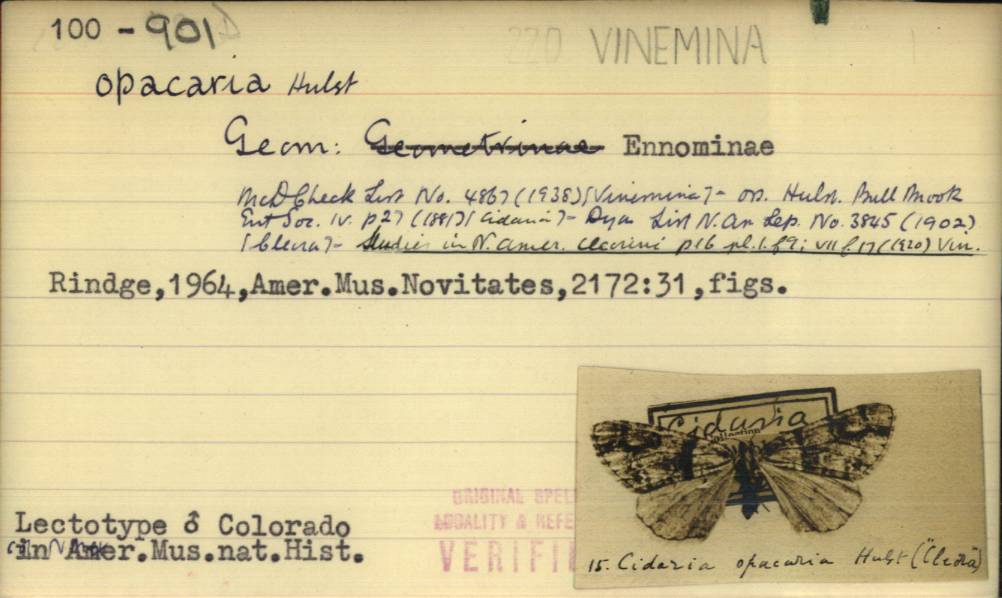 100 - 901
220 VINEMINA
opacaria Hulst
Geom: Geometrinae Ennominae
McD Check List No. 4867 (1938) [Vinemina] - op. Hulst. Bull Brook
Ent Soc. IV. p27 (1881) [Cidaria] - Dyar List N. Am Lep. No. 3845 (1902)
[Cleora] - Studies in N. Amer. Cleorini p16 pl.1.f9; VII f.17 (1920) Vin.
Rindge,1964,Amer.Mus.Novitates,2172:31,figs.
Cidaria
Lectotype ♂ Colorado
in Amer.Mus.nat.Hist.
ORIGINAL SPEL
LOCALITY & REFE
VERIFI
15. Cidaria opacaria Hulst ("Cleora")